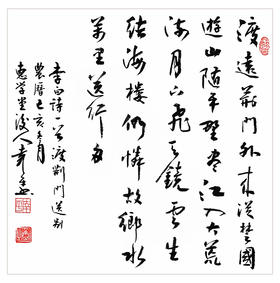 渡遠荊門外來從楚國
遊山隨平野盡江入大荒
流月下飛天鏡雲生
結海樓仍憐故鄉水
萬里送行舟
李白詩一首渡荊門送别
農曆己亥月
学堂後人